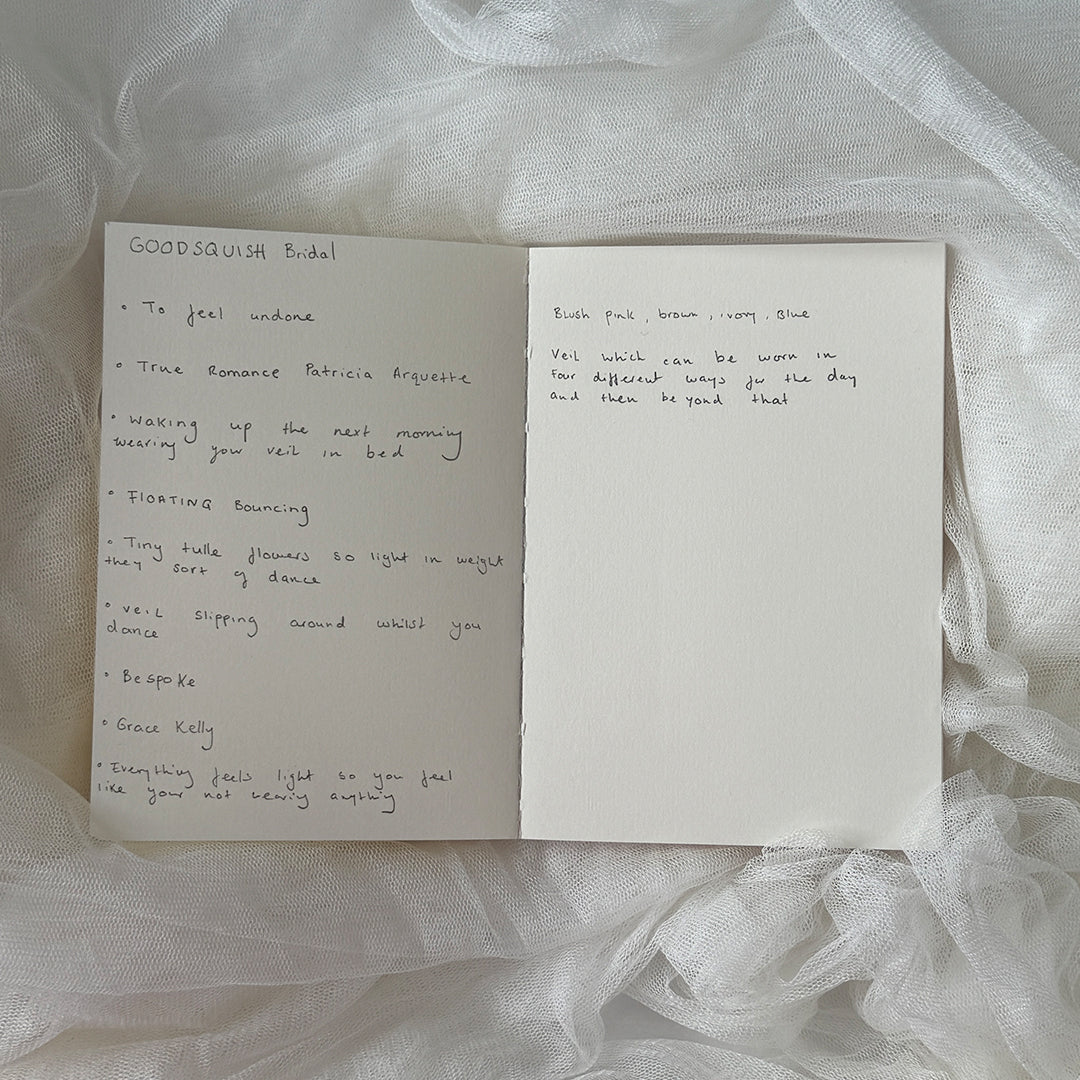 GOODSQUISH Bridal
• To feel undone
• True Romance Patricia Arquette
• Waking up the next morning
wearing your veil in bed
• FLOATING Bouncing
• Tiny tulle flowers so light in weight
they sort of dance
• veil slipping around whilst you
dance
• Bespoke
• Grace Kelly
• Everything feels light so you feel
like your not wearing anything
Blush pink, brown, ivory, Blue
Veil which can be worn in
four different ways for the day
and then beyond that